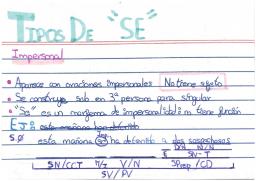 TIPOS DE "SE"
Impersonal
• Aparece con oraciones impersonales No tiene sujeto
• Se construye solo en 3ª persona para singular
• "Se" es un morfema de impersonalidad: no tiene función
EJ: esta mañana han detenido
S.O esta mañana se ha detenido a dos sospechosos
SN/CCT V/N SPrep/CD
SV/PV